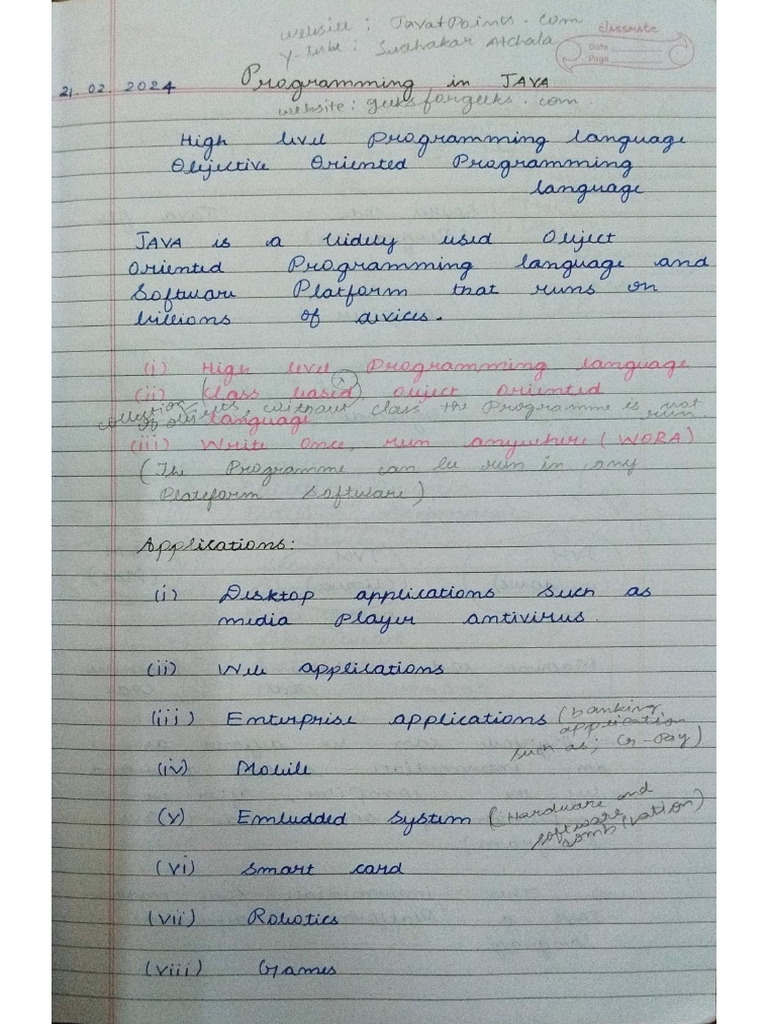 website : JavatPoints . com
Y-tube : Sudhakar Atchala
classmate
Date
Page
21. 02. 2024
Programming in JAVA
website : geeksforgeeks . com.
High level Programming language
Objective Oriented Programming
language
JAVA is a Widely used Object
Oriented Programming language and
Software Platform that runs on
billions of devices.
(i) High level Programming language
(ii) (Class based) object oriented
collection of objects, without class the Programme is not run
language
(iii) Write Once, run anywhere (WORA)
(The Programme can be run in any
Plateform Software)
Applications:
(i) Desktop applications such as
media player antivirus.
(ii) Web applications
(iii) Enterprise applications (banking
application
such as; G-Pay)
(iv) Mobile
(v) Embedded System (Hardware and
software
combination)
(vi) Smart card
(vii) Robotics
(viii) Games